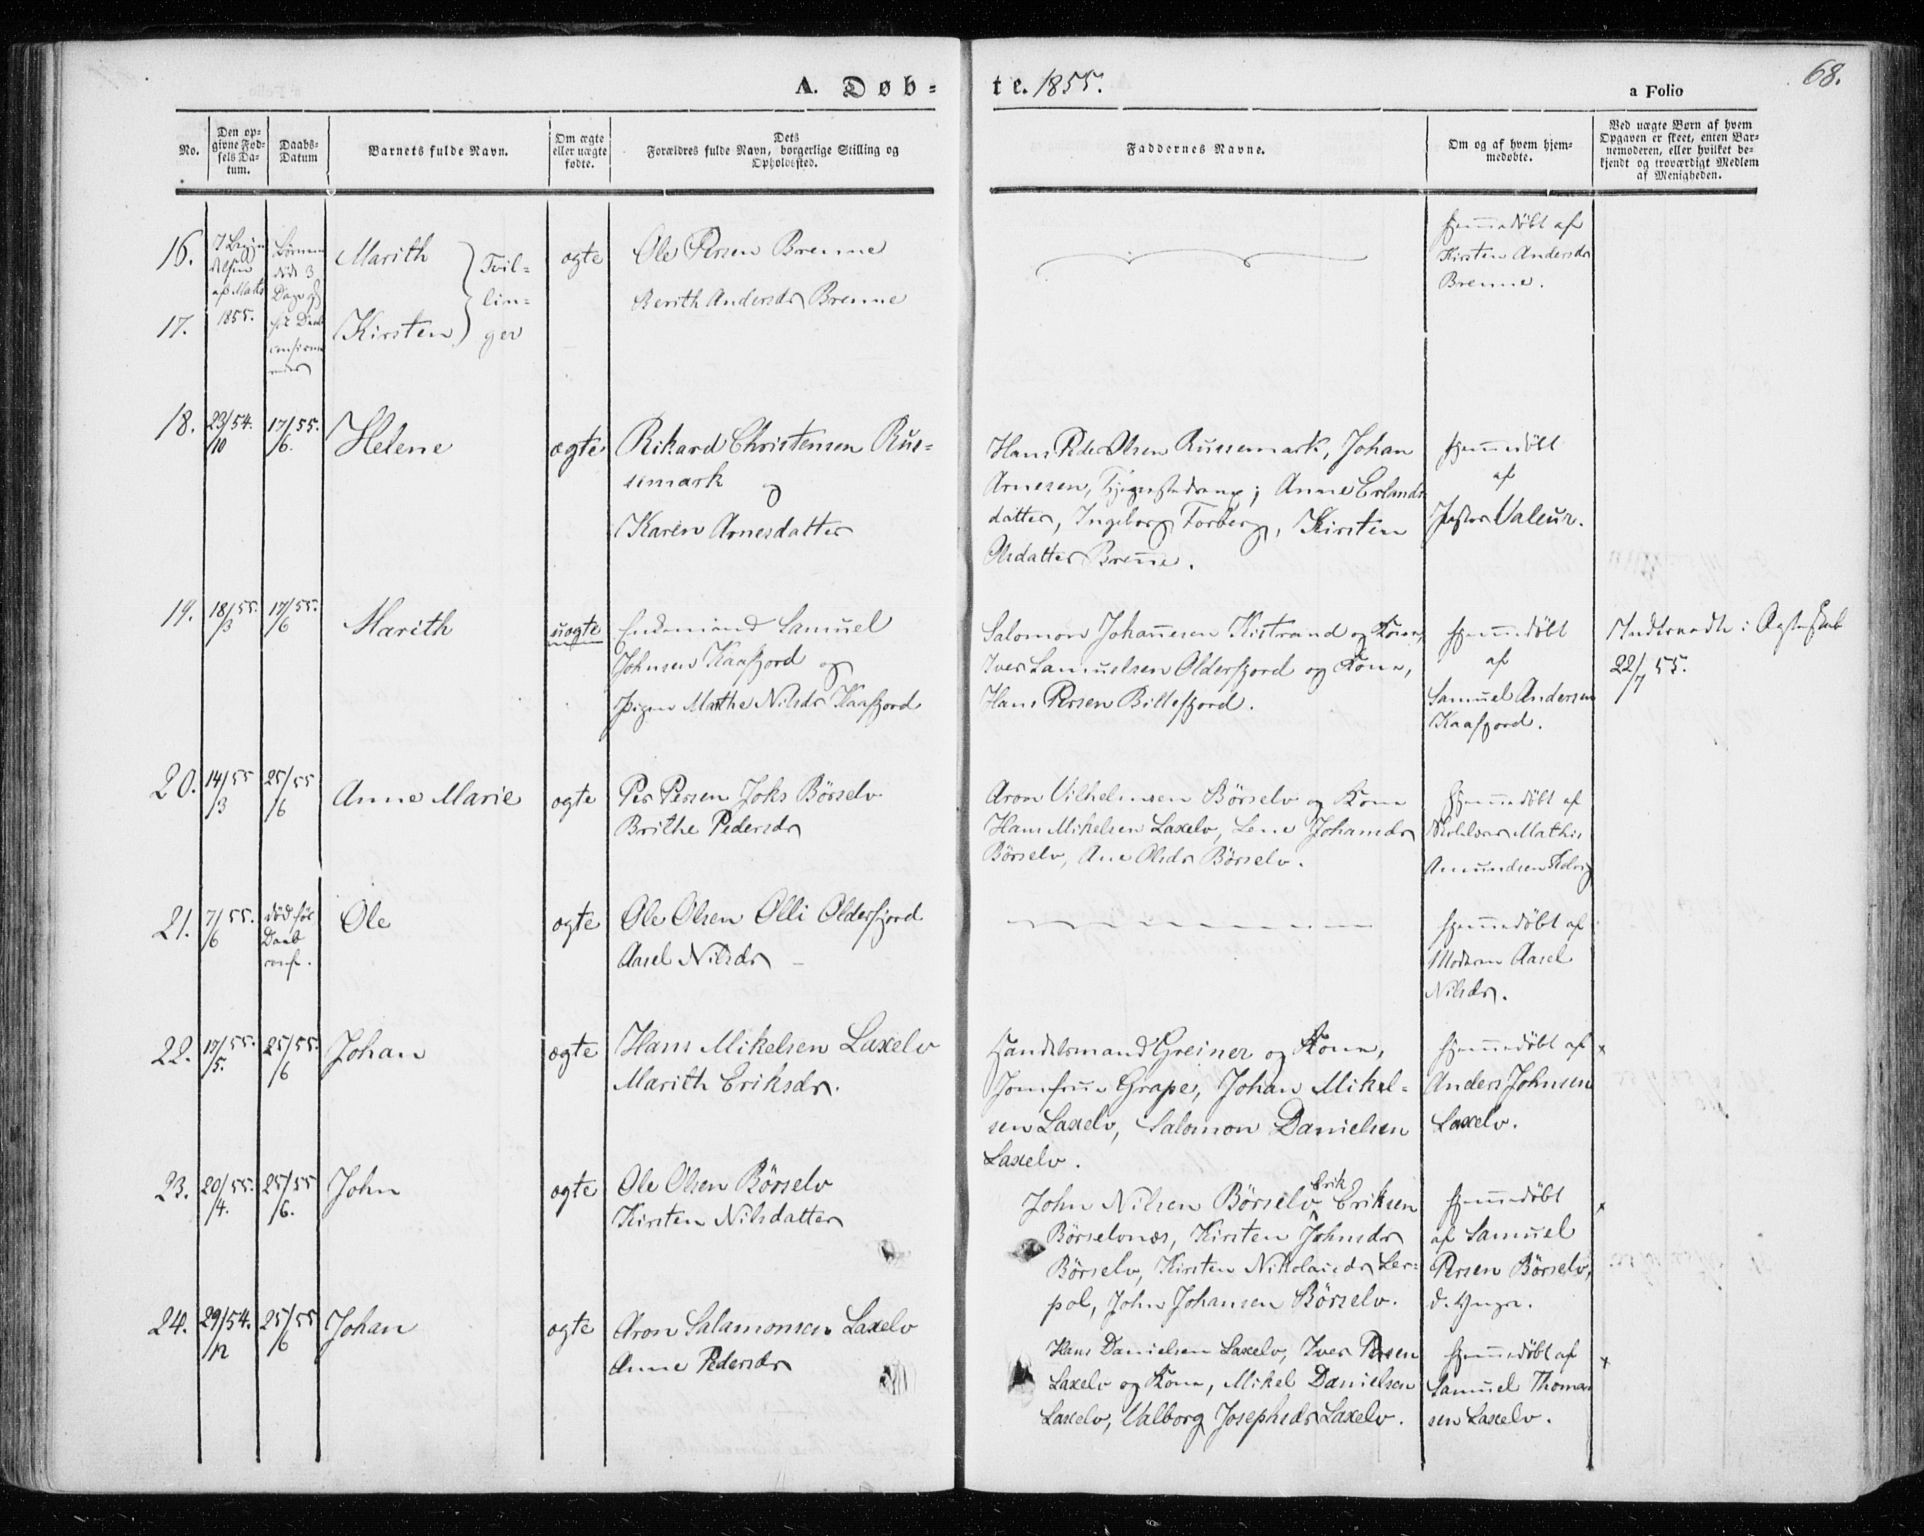 A. Døb-
te. 1855.
a Folio
68.
No.
Den op-
givne Fød-
sels Da-
tum.
Daabs-
Datum
Barnets fulde Navn.
Om ægte
eller uægte
fødte.
Dets
Forældres fulde Navn, borgerlige Stilling og
Opholdssted.
Faddernes Navne.
Om og af hvem hjem-
medøbte.
Ved uægte Børn af hvem
Opgaven er skeet, enten Bar-
nemoderen, eller hvilket be-
kjendt og troværdigt Medlem
af Menigheden.
16.
17.
af Marts
1855.
Børnene
døde 3
Dage
før Daab
Marith
Kirsten
Tvil-
lin-
ger
ægte
Ole Persen Brenne
Berith Andersdr Brenne
Hjemmedøbt af
Kirsten Andersdr
Brenne.
18.
23/10 54.
17/6 55.
Helene
ægte
Rikard Christensen Rus-
semark
og
Karen Arnesdatter
Hans Peder Olsen Russemark, Johan
Arnesen, Anne Erlands
datter, Ingeborg Torberg, Kirsten
Olsdatter Brenne.
Hjemmedøbt
af
Pastor Valeur.
19.
18/3 55.
17/6 55.
Marith
uægte
Enkemand Samuel
Johnsen Kaafjord og
Pigen Marthe Nilsdr Kaafjord
Salomon Johannesen Kistrand og Kone,
Iver Samuelsen Olderfjord og Kone,
Hans Persen Billefjord.
Hjemmedøbt
af
Samuel Andersen
Kaafjord.
Indtraadte i Ægteskab
22/7 55.
20.
14/3 55
25/6 55
Anne Marie
ægte
Per Persen Joks Børselv
Brithe Pedersdr
Aron Vilhelmsen Børselv og Kone
Hans Mikelsen Laxelv, Lene Johansdr
Børselv, Ane Olsdr Børselv.
Hjemmedøbt af
Skolelærer Mathis
Amundsen
21.
7/6 55.
død før
Daab
conf.
Ole
ægte
Ole Olsen Olli Olderfjord
Aasel Nilsdr –
Hjemmedøbt af
Moderen Aasel
Nilsdr.
22.
17/5. 55.
25/6 55.
Johan
ægte
Hans Mikelsen Laxelv
Marith Eriksdr.
Handelsmand Greiner og Kone,
Jomfrue Grape, Johan Mikel-
sen Laxelv, Salomon Danielsen
Laxelv.
Hjemmedøbt af
Anders Johnsen
Laxelv.
x
23.
20/4. 55.
25/6. 55
John
ægte
Ole Olsen Børselv
Kirsten Nilsdatter
John Nilsen Børselv, Erik Eriksen
Børselvnæs, Kirsten Johnsdr
Børselv, Kirsten Nikolaisdr Ler-
pol, John Johansen Børselv.
Hjemmedøbt
af Samuel
Persen Børselv,
d. Yngre.
x
24.
29/12 54.
25/6 55
Johan
ægte
Aron Salamonsen Laxelv
Anne Pedersdr
Hans Danielsen Laxelv, Iver Persen
Laxelv og Kone, Mikel Danielsen
Laxelv, Valborg Josephsdr Laxelv.
Hjemmedøbt af
Samuel Thomas
sen Laxelv.
x